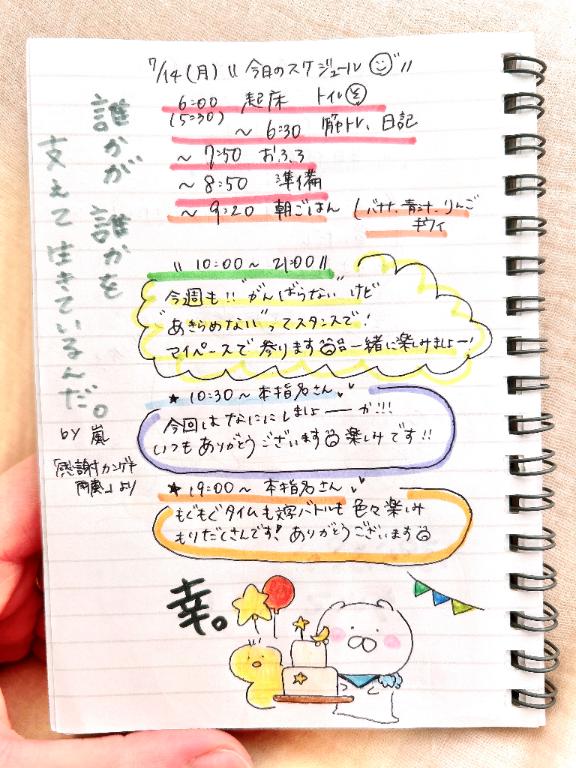 7/14(月) \\ 今日のスケジュール //
6:00 起床 トイレ
(5:30)
~ 6:30 筋トレ、日記
~ 7:50 おふろ
~ 8:50 準備
~ 9:20 朝ごはん (バナナ、青汁、りんご
キウイ
\\ 10:00~21:00 //
今週も!! "がんばらない" けど
"あきらめない" ってスタンスで!
マイペースで参ります 一緒に楽しみましょー!
★ 10:30~ 本指名さん
今回はなににしましょーーか!!!
いつもありがとうございます 楽しみです!!
★ 19:00~ 本指名さん
もぐもぐタイムも文字バトルも色々楽しみ
もりだくさんです! ありがとうございます
誰かが 誰かを
支えて生きているんだ。
by 嵐
「感謝カンゲキ
雨嵐」より
幸。